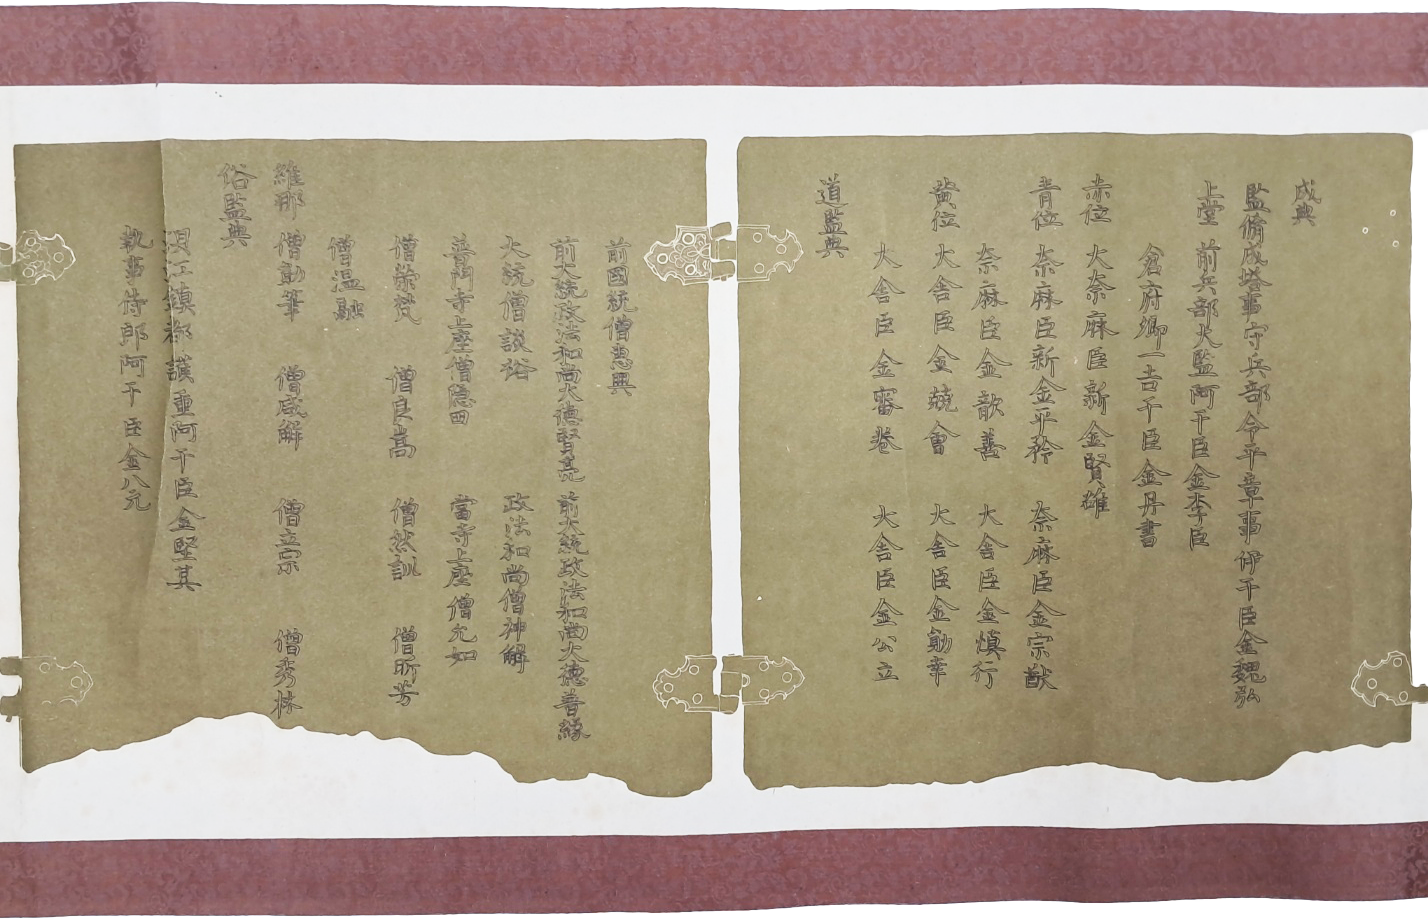 成典
監脩成塔事守兵部令平章事伊干臣金魏弘
上堂 前兵部大監阿干臣金李臣
倉府卿一吉干臣金丹書
赤位 大奈麻臣新金賢雄
青位 奈麻臣新金平矜 奈麻臣金宗猷
奈麻臣金歆善 大舍臣金愼行
黄位 大舍臣金兢會 大舍臣金勛幸
大舍臣金審卷 大舍臣金公立
道監典
前國統僧惠興
前大統政法和尚大德賢亮 前大統政法和尚大德普緣
大統僧談裕 政法和尚僧神解
普門寺上座僧隱田 當寺上座僧允如
僧榮梵 僧良嵩 僧然訓 僧昕芳
僧温融
維那 僧勛筆 僧咸解 僧立宗 僧秀林
俗監典
浿江鎮都護重阿干臣金堅其
執事侍郎阿干臣金八元